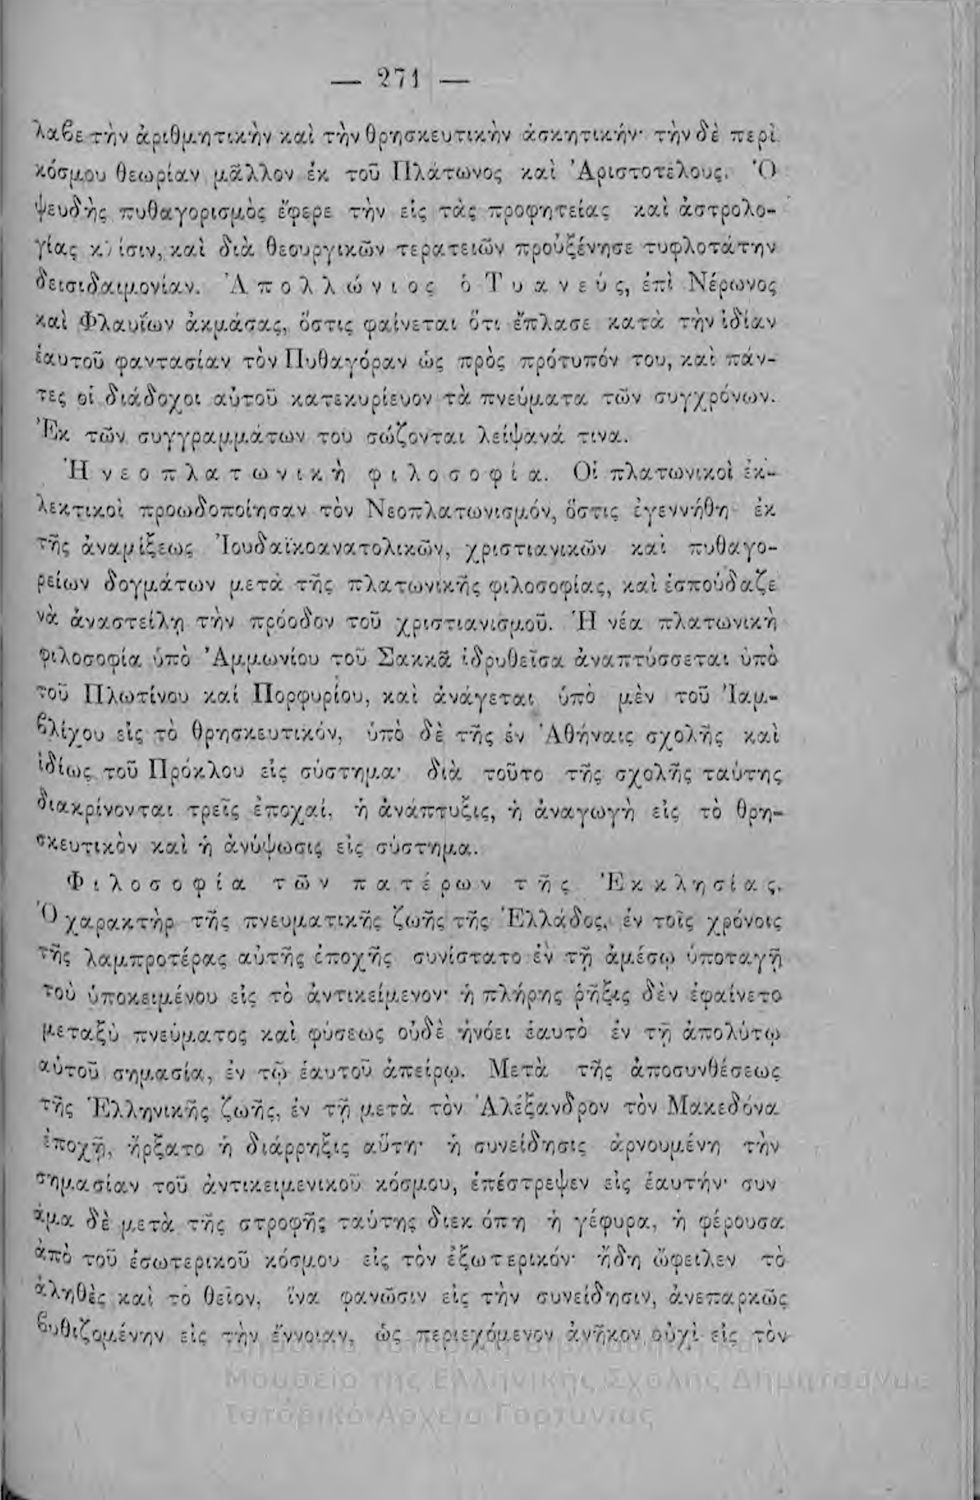 — 271 —
λαβε τὴν ἀριθμητικὴν καὶ τὴν θρησκευτικὴν ἀσκητικήν· τὴν δὲ περὶ
κόσμου θεωρίαν μᾶλλον ἐκ τοῦ Πλάτωνος καὶ Ἀριστοτέλους. Ὁ
ψευδὴς πυθαγορισμὸς ἔφερε τὴν εἰς τὰς προφητείας καὶ ἀστρολο-
γίας κλίσιν, καὶ διὰ θεουργικῶν τερατειῶν προὐξένησε τυφλοτάτην
δεισιδαιμονίαν. Ἀπολλώνιος ὁ Τυανεύς, ἐπὶ Νέρωνος
καὶ Φλαυΐων ἀκμάσας, ὅστις φαίνεται ὅτι ἔπλασε κατὰ τὴν ἰδίαν
ἑαυτοῦ φαντασίαν τὸν Πυθαγόραν ὡς πρὸς πρότυπόν του, καὶ πάν-
τες οἱ διάδοχοι αὐτοῦ κατεκυρίευον τὰ πνεύματα τῶν συγχρόνων.
Ἐκ τῶν συγγραμμάτων του σώζονται λείψανά τινα.
Ἡ νεοπλατωνικὴ φιλοσοφία. Οἱ πλατωνικοὶ ἐκ-
λεκτικοὶ προωδοποίησαν τὸν Νεοπλατωνισμόν, ὅστις ἐγεννήθη ἐκ
τῆς ἀναμίξεως Ἰουδαϊκοανατολικῶν, χριστιανικῶν καὶ πυθαγο-
ρείων δογμάτων μετὰ τῆς πλατωνικῆς φιλοσοφίας, καὶ ἐσπούδαζε
νὰ ἀναστείλῃ τὴν πρόοδον τοῦ χριστιανισμοῦ. Ἡ νέα πλατωνικὴ
φιλοσοφία ὑπὸ Ἀμμωνίου τοῦ Σακκᾶ ἱδρυθεῖσα ἀναπτύσσεται ὑπὸ
τοῦ Πλωτίνου καί Πορφυρίου, καὶ ἀνάγεται ὑπὸ μὲν τοῦ Ἰαμ-
βλίχου εἰς τὸ θρησκευτικόν, ὑπὸ δὲ τῆς ἐν Ἀθήναις σχολῆς καὶ
ἰδίως τοῦ Πρόκλου εἰς σύστημα· διὰ τοῦτο τῆς σχολῆς ταύτης
διακρίνονται τρεῖς ἐποχαί, ἡ ἀνάπτυξις, ἡ ἀναγωγὴ εἰς τὸ θρη-
σκευτικὸν καὶ ἡ ἀνύψωσις εἰς σύστημα.
Φιλοσοφία τῶν πατέρων τῆς Ἐκκλησίας.
Ὁ χαρακτὴρ τῆς πνευματικῆς ζωῆς τῆς Ἑλλάδος, ἐν τοῖς χρόνοις
τῆς λαμπροτέρας αὐτῆς ἐποχῆς συνίστατο ἐν τῇ ἀμέσῳ ὑποταγῇ
τοῦ ὑποκειμένου εἰς τὸ ἀντικείμενον· ἡ πλήρης ῥῆξις δὲν ἐφαίνετο
μεταξὺ πνεύματος καὶ φύσεως οὐδὲ ἠνόει ἑαυτὸ ἐν τῇ ἀπολύτῳ
αὑτοῦ σημασία, ἐν τῷ ἑαυτοῦ ἀπείρῳ. Μετὰ τῆς ἀποσυνθέσεως
τῆς Ἑλληνικῆς ζωῆς, ἐν τῇ μετὰ τὸν Ἀλέξανδρον τὸν Μακεδόνα
ἐποχῇ, ἤρξατο ἡ διάρρηξις αὕτη· ἡ συνείδησις ἀρνουμένη τὴν
σημασίαν τοῦ ἀντικειμενικοῦ κόσμου, ἐπέστρεψεν εἰς ἑαυτήν· συν
άμα δὲ μετὰ τῆς στροφῆς ταύτης διεκόπη ἡ γέφυρα, ἡ φέρουσα
ἀπὸ τοῦ ἐσωτερικοῦ κόσμου εἰς τὸν ἐξωτερικόν· ἤδη ὤφειλεν τὸ
ἀληθὲς καὶ τὸ θεῖον, ἵνα φανῶσιν εἰς τὴν συνείδησιν, ἀνεπαρκῶς
βυθιζομένην εἰς τὴν ἔννοιαν, ὡς περιεχόμενον ἀνῆκον οὐχὶ εἰς τὸν
Δημόσια Ιστορική Βιβλιοθήκη και
Μουσείο της Ελληνικής Σχολής Δημητσάνας
Ιστορικό Αρχείο Γορτυνίας